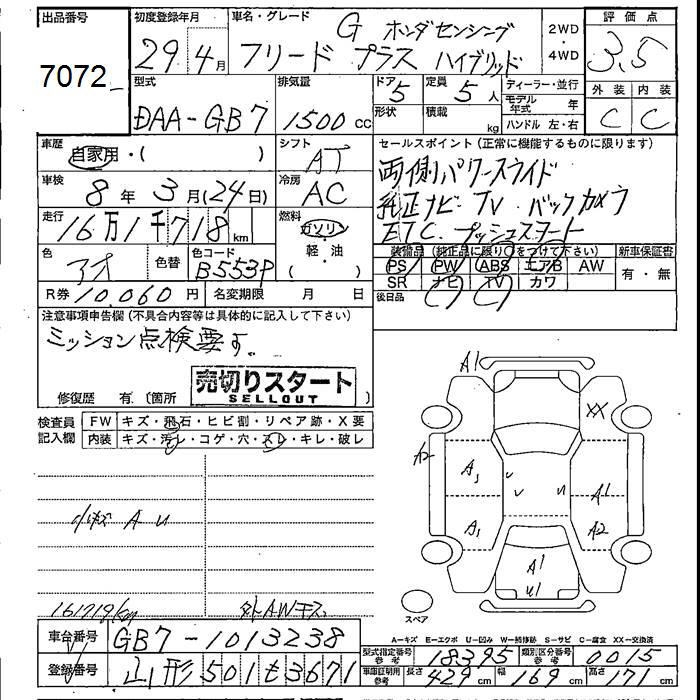 出品番号
7072
初度登録年月
29年4月
車名・グレード
G ホンダセンシング
フリード プラス ハイブリッド
2WD
・
4WD
評価点
3.5
外装 内装
C C
型式
DAA-GB7
排気量
1500cc
ドア 5
形状
定員 5人
積載 kg
ディーラー・並行
モデル年式 年
ハンドル 左・右
車歴
自家用・( )
シフト
AT
セールスポイント (正常に機能するものに限ります)
両側パワースライド
純正ナビ・TV・バックカメラ
ETC・プッシュスタート
車検
8年3月(24日)
冷房
AC
走行
16万1千718km
燃料
ガソリン
・
軽油
・( )
色
アオ
色替
色コード
B553P
装備品 (純正品に限り○をつけて下さい)
PS PW ABS エアB AW
SR ナビ TV カワ
後日品
新車保証書
有・無
R券 10,060円
名変期限 月 日
注意事項申告欄 (不具合内容等は具体的に記入して下さい)
ミッション点検要す。
売切りスタート
SELLOUT
修復歴 有.(箇所 )
検査員記入欄
FW キズ・飛石・ヒビ割・リペア跡・X要
内装 キズ・汚レ・コゲ・穴・スレ・キレ・破レ
小キズ A U
161719km
外AWキズ
A1
XX
A2
A1
A1
A1
A2
A1
U1
スペア
A-キズ E-エクボ U-凹み W-補修跡 S-サビ C-腐食 XX-交換済
車台番号
GB7-1013238
登録番号
山形501も3671
型式指定番号 参考
18395
類別区分番号 参考
0015
車庫証明用 参考
長さ 429cm 幅 169cm 高さ 171cm